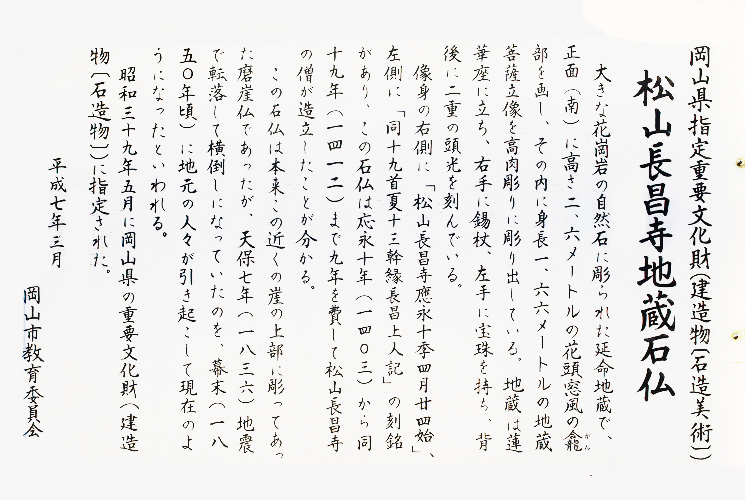 岡山県指定重要文化財(建造物〔石造美術〕)
松山長昌寺地蔵石仏
大きな花崗岩の自然石に彫られた延命地蔵で、
正面(南)に高さ二、六メートルの花頭窓風の龕
かん
部を画し、その内に身長一、六六メートルの地蔵
菩薩立像を高肉彫りに彫り出している。地蔵は蓮
華座に立ち、右手に錫杖、左手に宝珠を持ち、背
後に二重の頭光を刻んでいる。
像身の右側に「松山長昌寺應永十季四月廿四始」、
左側に「同十九首夏十三幹縁長昌上人記」の刻銘
があり、この石仏は応永十年(一四〇三)から同
十九年(一四一二)まで九年を費して松山長昌寺
の僧が造立したことが分かる。
この石仏は本来この近くの崖の上部に彫ってあっ
た磨崖仏であったが、天保七年(一八三六)地震
で転落して横倒しになっていたのを、幕末(一八
五〇年頃)に地元の人々が引き起こして現在のよ
うになったといわれる。
昭和三十九年五月に岡山県の重要文化財(建造
物〔石造物〕)に指定された。
平成七年三月
岡山市教育委員会